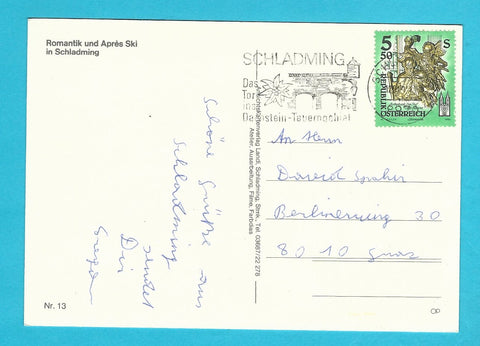 Romantik und Après Ski
in Schladming
SCHLADMING
Das
Tor
Dachstein-Tauernachel
5 S
50
REPUBLIK
ÖSTERREICH
Schöne Grüße aus
Schladming
sendet
Dir
An Herrn
David
Berlinerring 30
8010 Graz
Landl, Schladming, Stmk., Tel. 03687/22 278
Atelier, Ausarbeitung, Filme, Farbdias
Nr. 13